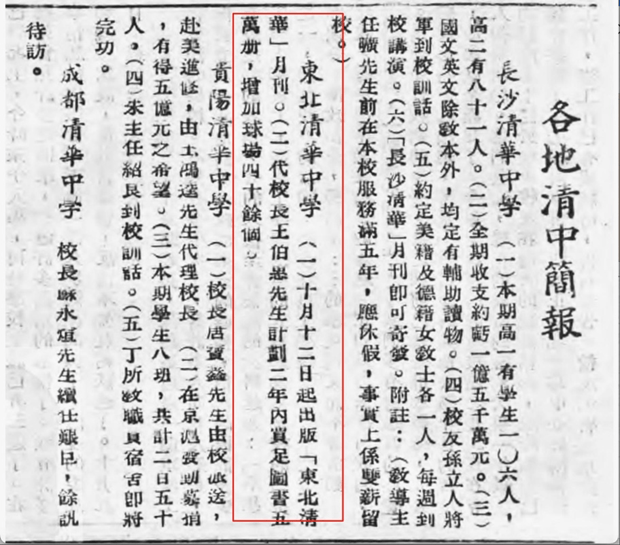 各地清中簡報
長沙清華中學　（一）本期高一有學生一〇六人，
高二有八十一人。（二）全期收支約虧一億五千萬元。（三）
國文英文除教本外，均定有輔助讀物。（四）校友孫立人將
軍到校訓話。（五）約定美籍及德籍女教士各一人，每週到
校講演。（六）「長沙清華」月刊即可寄發。附註：（教導主
任曠先生前在本校服務滿五年，應休假，事實上係雙薪留
校。）
東北清華中學　（一）十月十二日起出版「東北清
華」月刊。（二）代校長王伯惠先生計劃二年內買足圖書五
萬册，增加球場四十餘個。
貴陽清華中學　（一）校長唐寶鑫先生由校派送，
赴美進修，由王鴻逵先生代理校長（二）在京滬發動募捐
，有得五億元之希望。（三）本期學生八班，共計二百五十
人。（四）朱主任紹良到校訓話。（五）丁所教職員宿舍即將
完功。
成都清華中學　校長蘇永煊先生續任艱巨，餘訊
待訪。